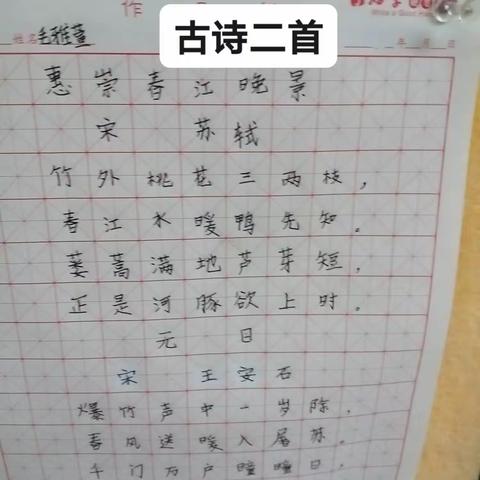 作
古诗二首
姓名毛雅萱
年 月 日
惠崇春江晚景
宋 苏轼
竹外桃花三两枝，
春江水暖鸭先知。
蒌蒿满地芦芽短，
正是河豚欲上时。
元 日
宋 王安石
爆竹声中一岁除，
春风送暖入屠苏。
千门万户曈曈日，